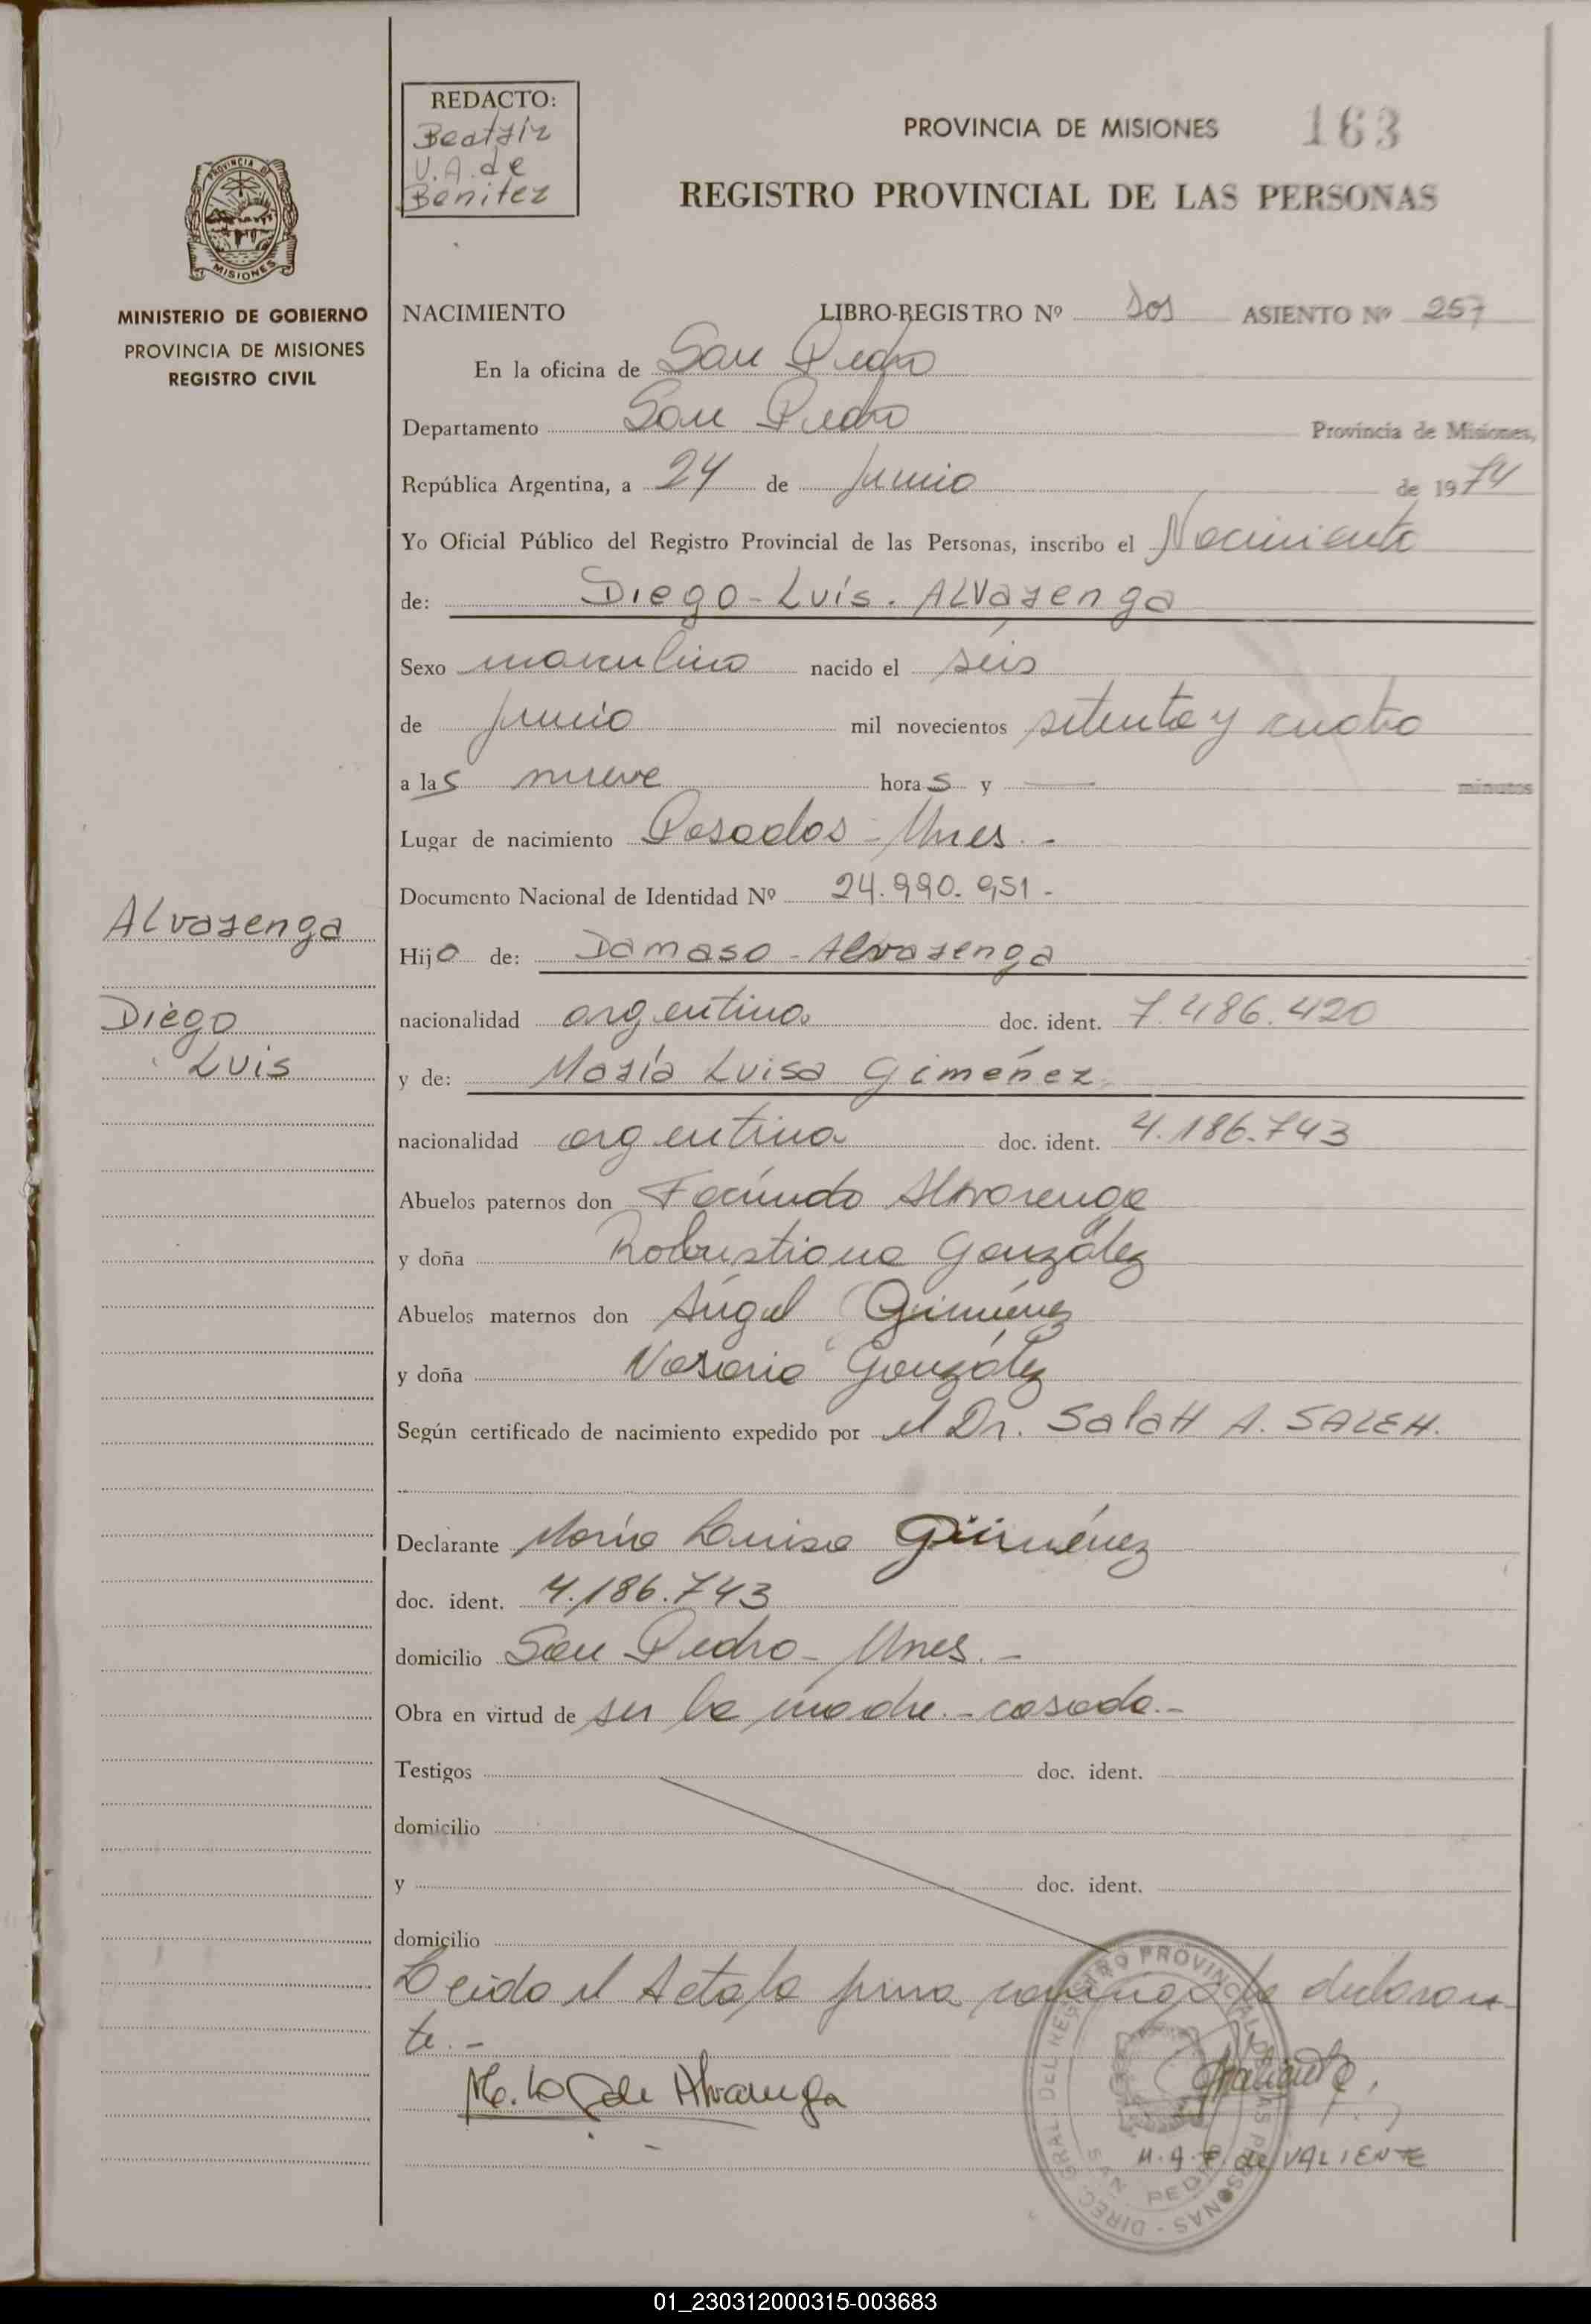 REDACTO:
Beatriz
V. A. de
Benitez
PROVINCIA DE MISIONES 163
REGISTRO PROVINCIAL DE LAS PERSONAS
PROVINCIA DE
MISIONES
MINISTERIO DE GOBIERNO
PROVINCIA DE MISIONES
REGISTRO CIVIL
NACIMIENTO LIBRO-REGISTRO Nº Dos ASIENTO Nº 257
En la oficina de San Pedro
Departamento San Pedro Provincia de Misiones,
República Argentina, a 24 de Junio de 1974
Yo Oficial Público del Registro Provincial de las Personas, inscribo el Nacimiento
de: Diego-Luís. ALVarenga
Sexo masculino nacido el séis
de junio mil novecientos setenta y cuatro
a las nueve horas y — minutos
Lugar de nacimiento Posadas - Mnes. -
Documento Nacional de Identidad Nº 24.990.951-
Alvarenga
Diego
Luis
Hijo de: Damaso - Alvarenga
nacionalidad argentina doc. ident. 7.486.420
y de: María Luisa Giménez
nacionalidad argentina doc. ident. 4.186.743
Abuelos paternos don Facúndo Alvarenga
y doña Robustiana González
Abuelos maternos don Ángel Giménez
y doña González
Según certificado de nacimiento expedido por el Dr. SalaH A. SALEH.
Declarante María Luisa Giménez
doc. ident. 4.186.743
domicilio San Pedro - Mnes. -
Obra en virtud de ser la madre. - casada. -
Testigos doc. ident.
domicilio
y doc. ident.
domicilio
Leida el Acta, la firma conmigo la declaran-
te. -
M. L. G de Alvarenga
DIREC. GRAL. DEL REGISTRO PROVINCIAL DE LAS PERSONAS -
SAN PEDRO
de VALIENTE
01_230312000315-003683